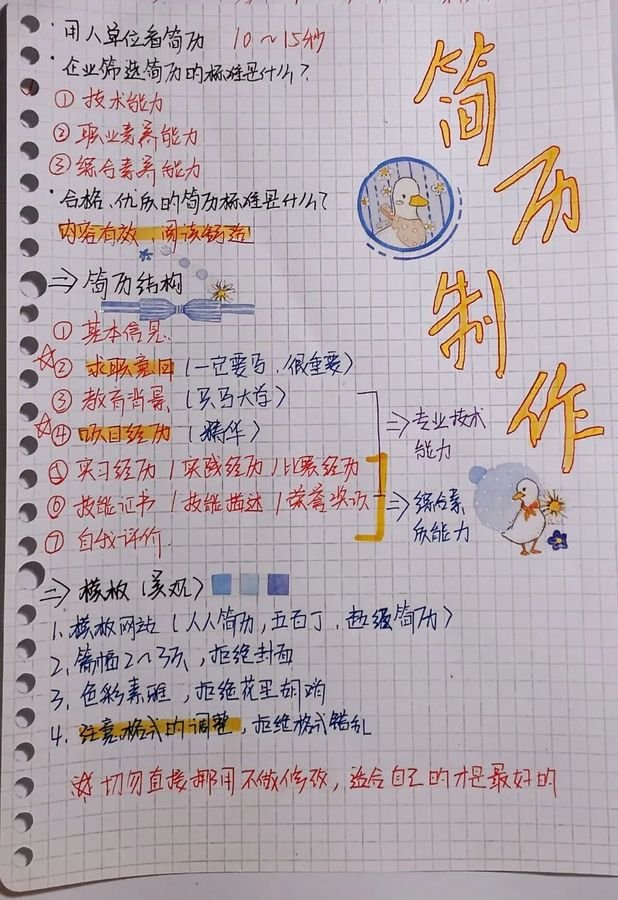 简历制作
·用人单位看简历 10~15秒
·企业筛选简历的标准是什么?
① 技术能力
② 职业素养能力
③ 综合素养能力
·合格、优质的简历标准是什么?
内容有效,阅读舒适
⇒ 简历结构
① 基本信息.
☆② 求职意向(一定要写,很重要)
③ 教育背景(买马大学)
☆④ 项目经历(精华)
⑤ 实习经历/实践经历/比赛经历
⑥ 技能证书/技能描述/荣誉奖项
⑦ 自我评价.
⇒专业技术能力
⇒综合素质能力
⇒ 模板(美观)
1. 模板网站(人人简历,五百丁,超级简历)
2. 篇幅2~3页,拒绝封面
3. 色彩素雅,拒绝花里胡哨
4. 注意格式的调整,拒绝格式错乱
☆切勿直接挪用不做修改,适合自己的才是最好的